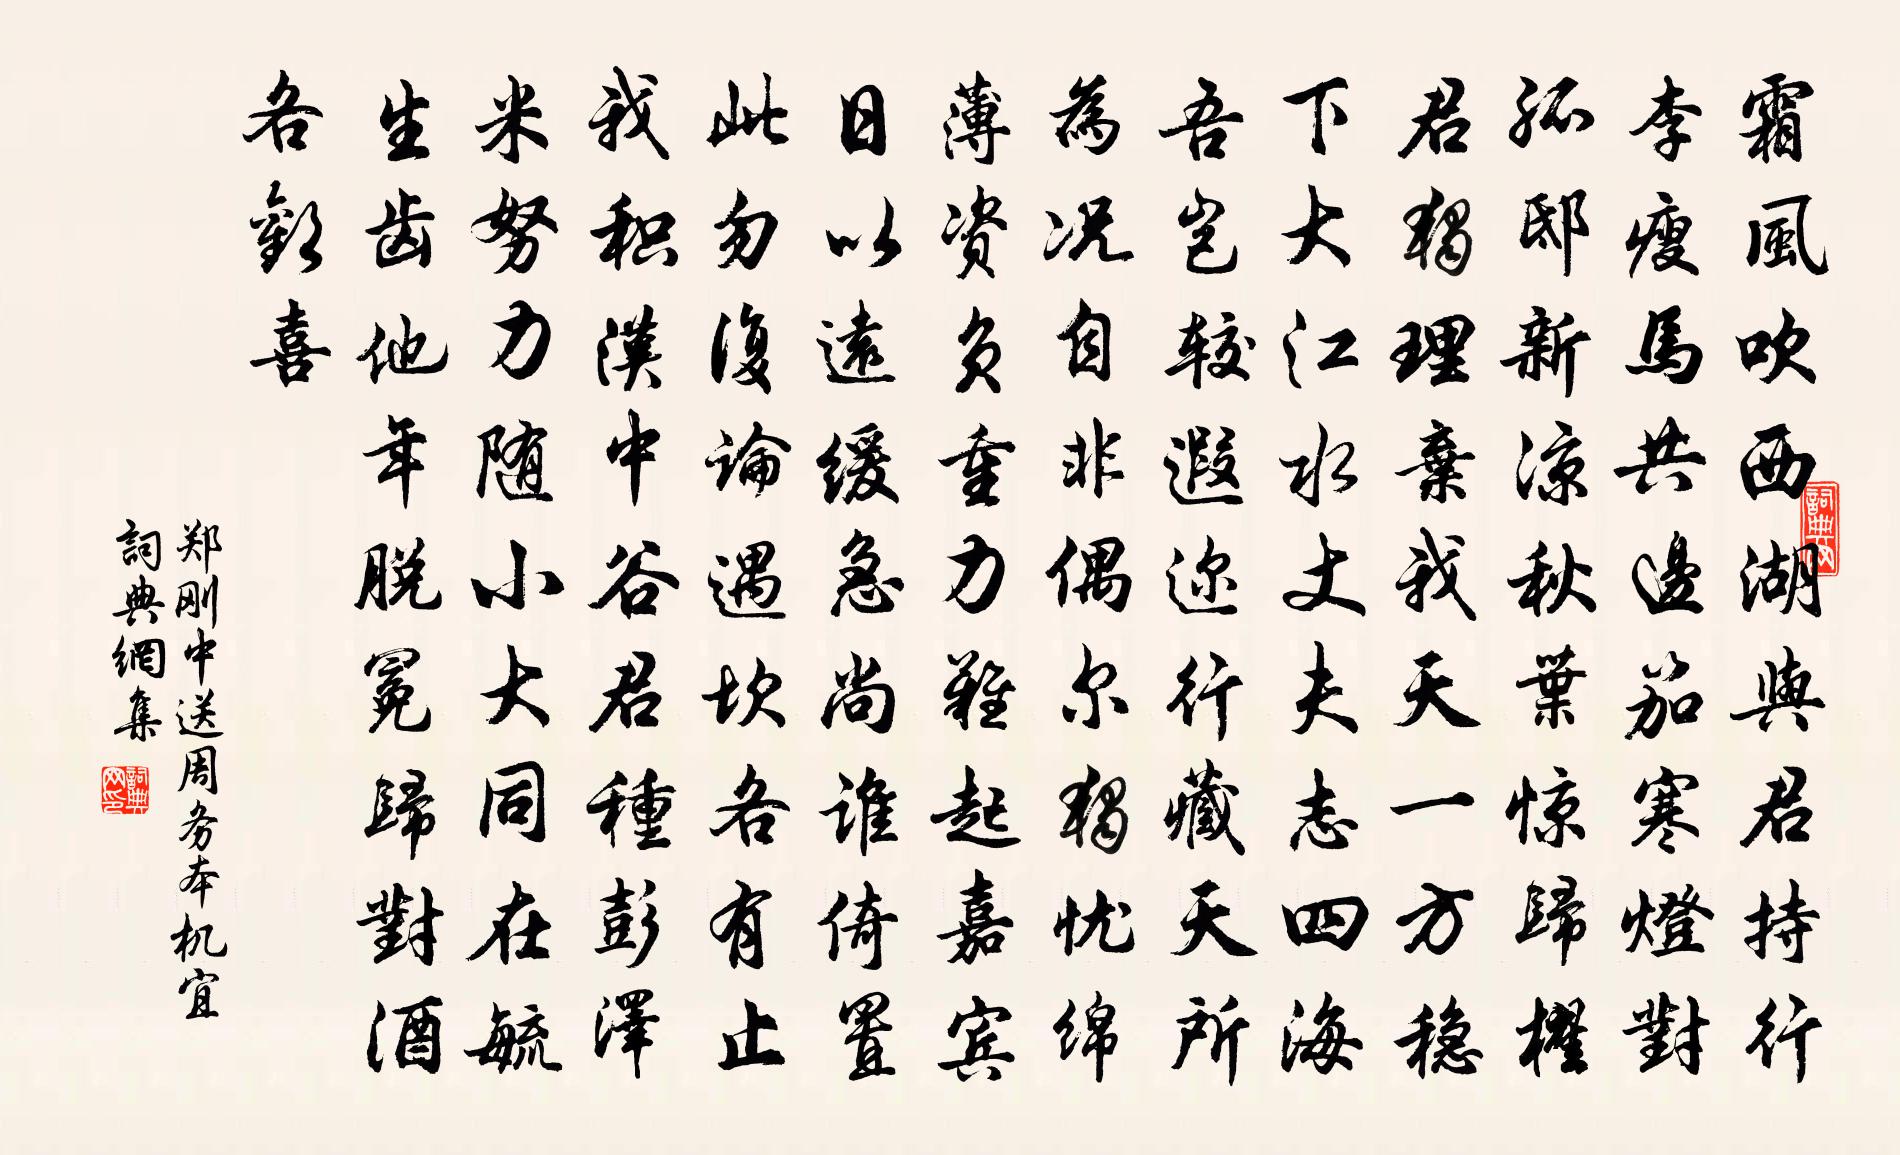 霜風吹西湖與君持行
李瘦馬共邊笳寒燈對
孤邸新凉秋葉惊歸櫂
君獨理棄我天一方穏
下大江水丈夫志四海
吾岂较遐迩行藏天所
為况自非偶尔獨忧绵
薄资负重力難起嘉宾
日以遠缓急尚谁倚置
此勿復論遇坎各有止
我积漢中谷君種彭澤
米努力随小大同在毓
生齿他年脱冕歸對酒
各歡喜
郑刚中送周务本机宜
詞典網集
詞典网
詞典网印